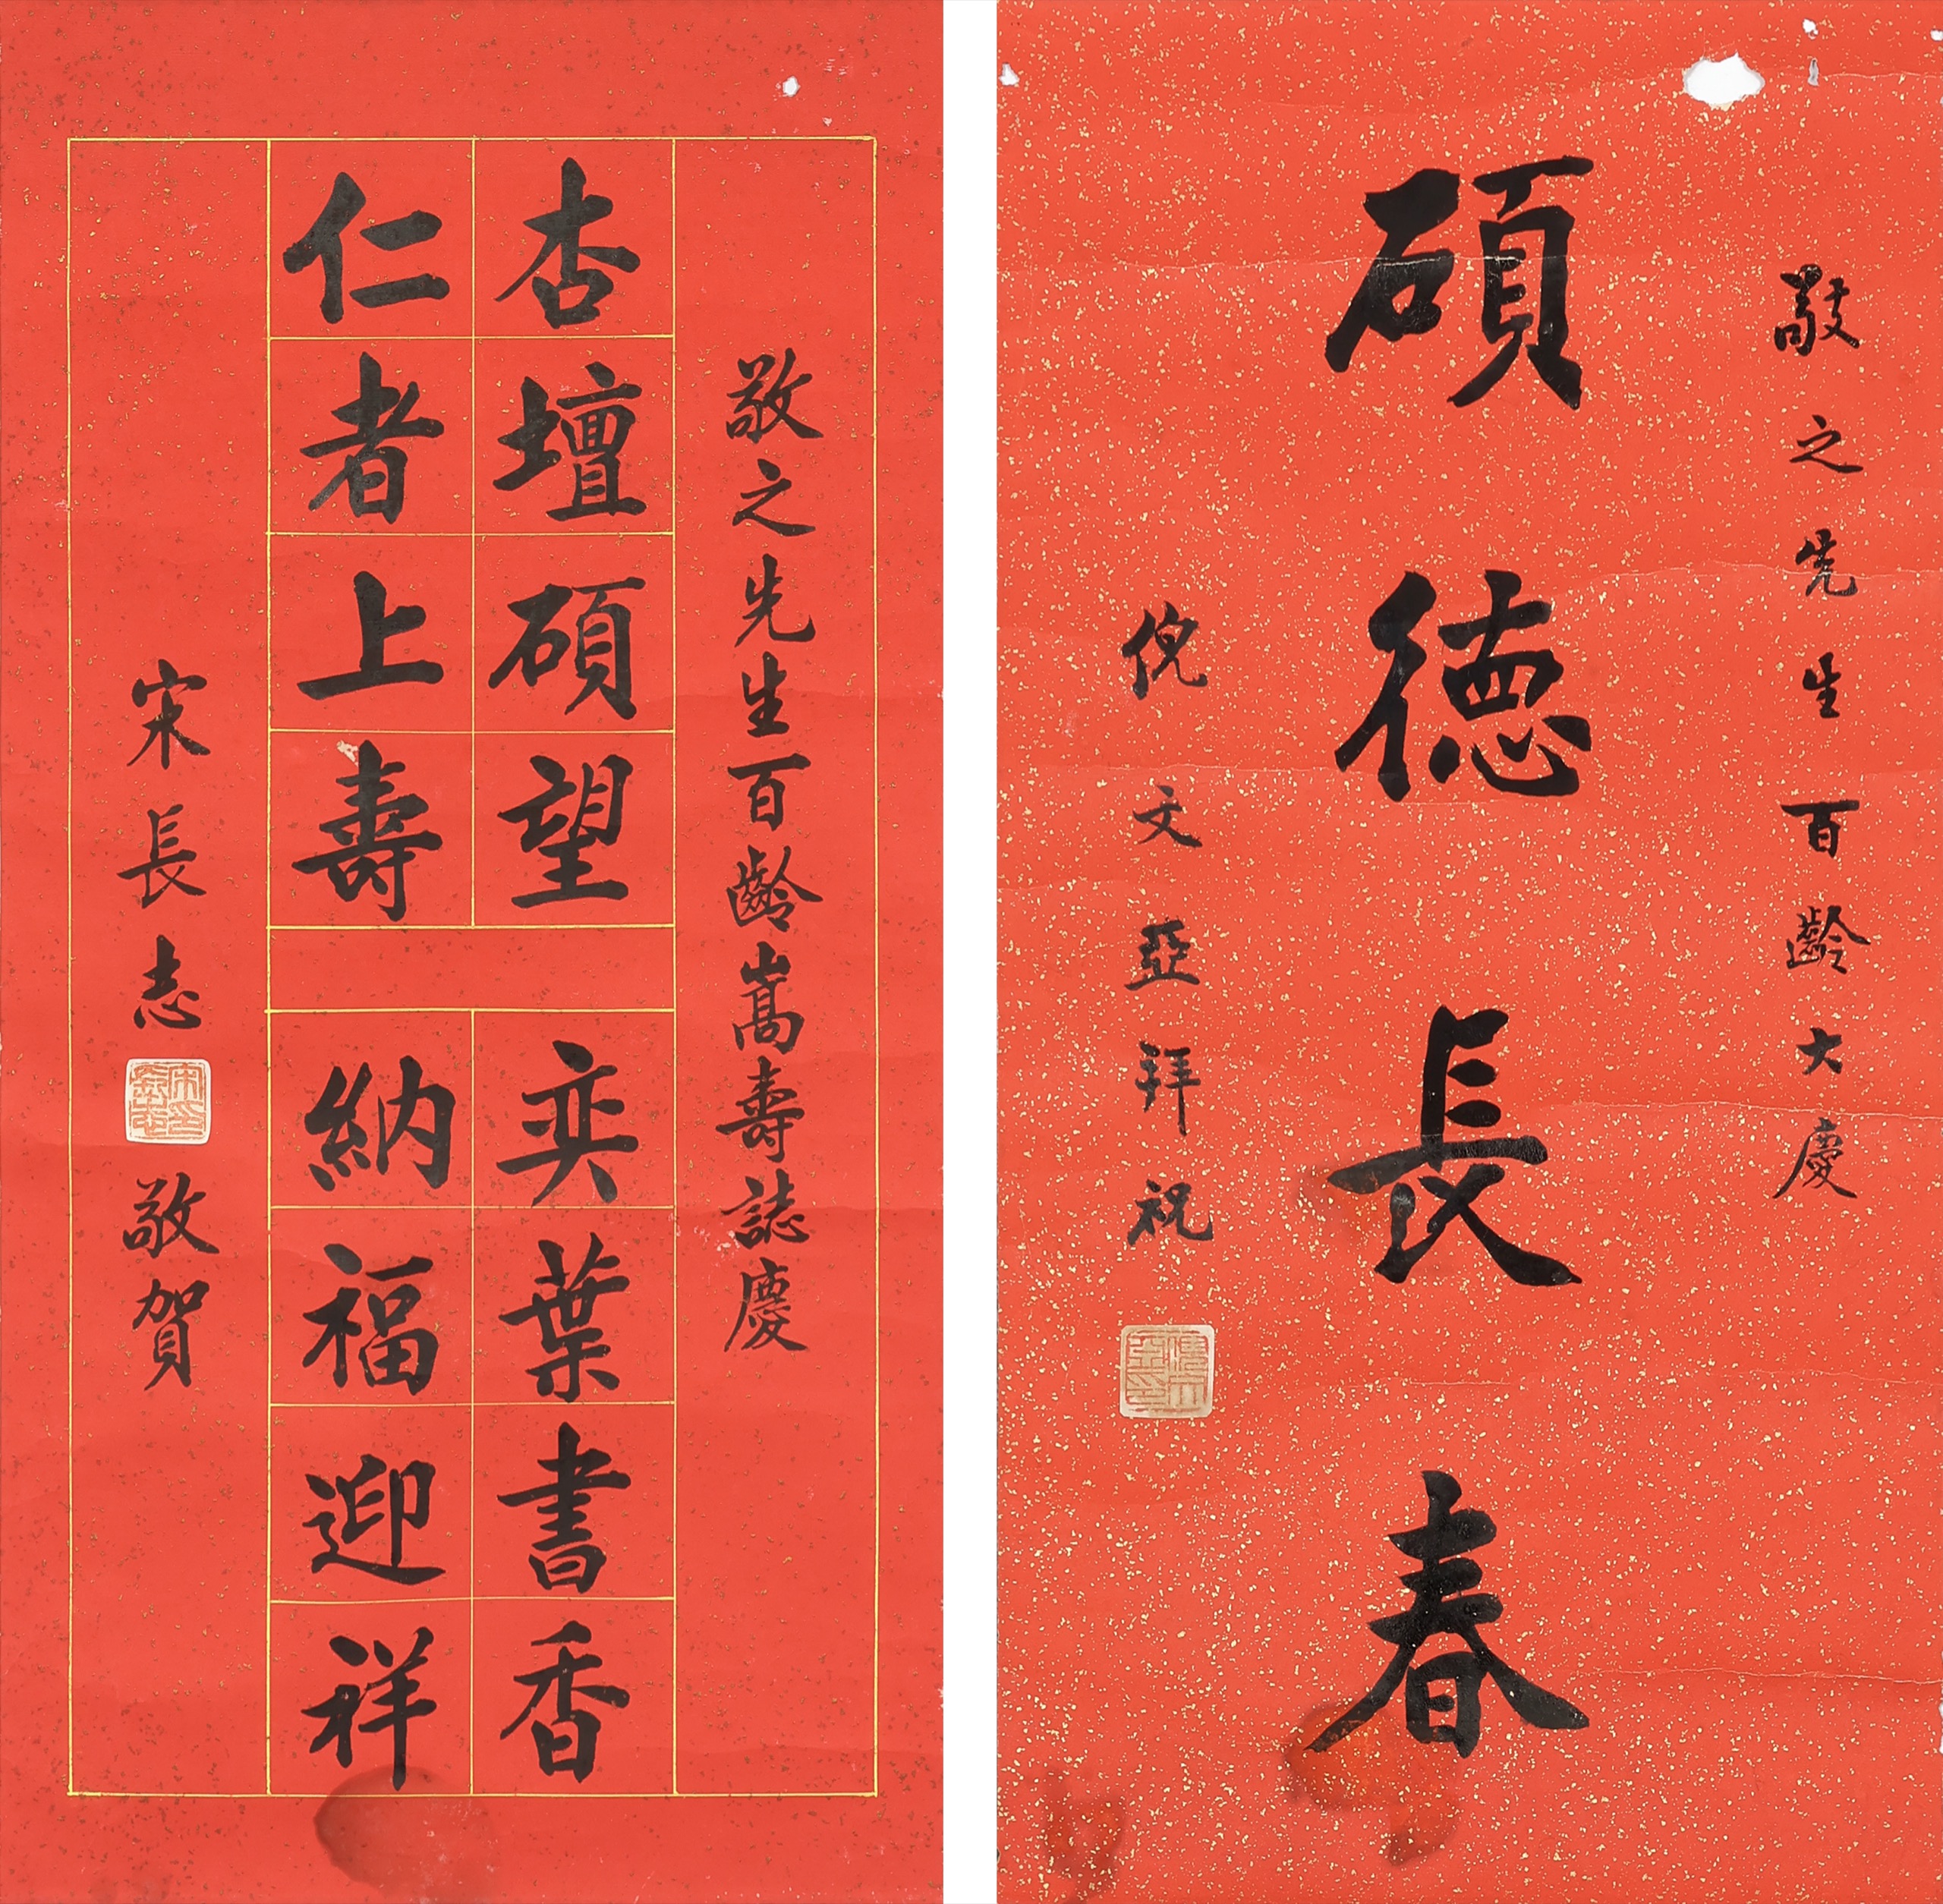 敬之先生百齡大慶
碩德長春
倪文亞拜祝
敬之先生百齡嵩壽誌慶
杏壇碩望 奕葉書香
仁者上壽 納福迎祥
宋長志 敬賀